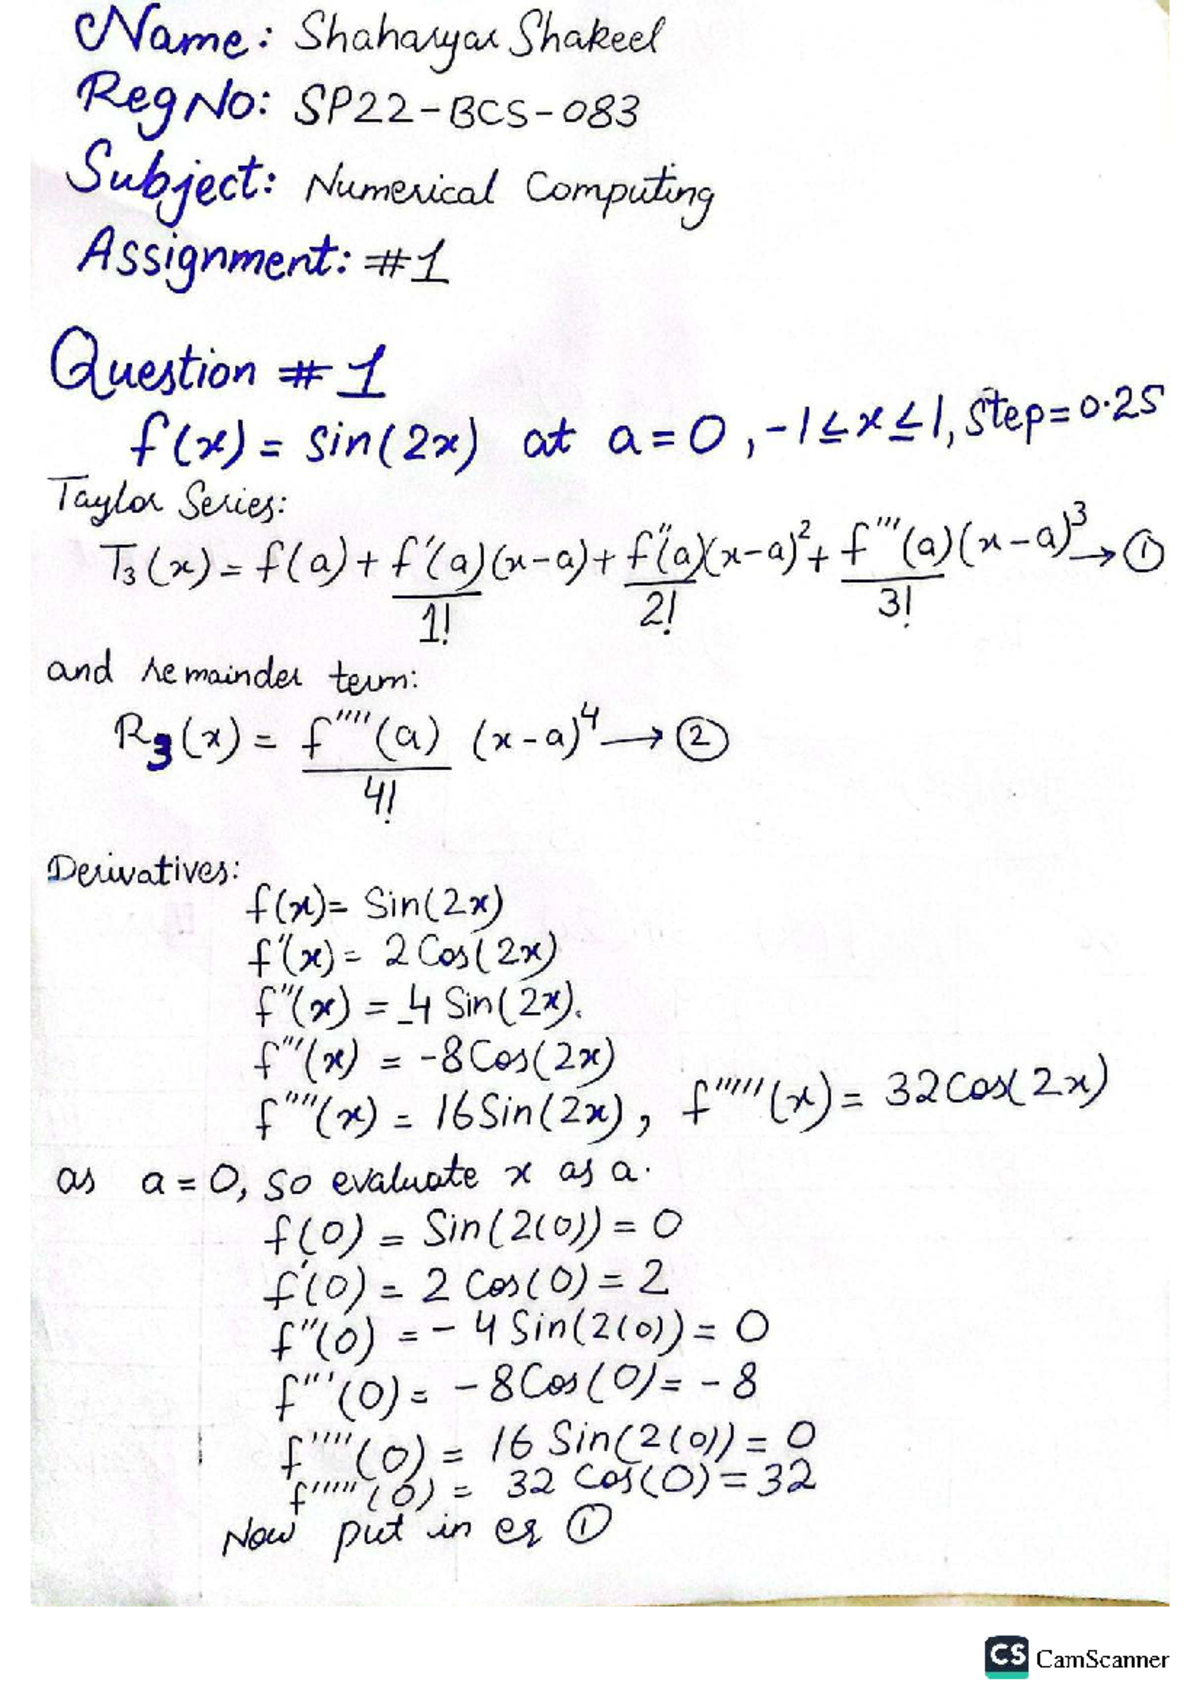 Name: Shaharyar Shakeel
Reg No: SP22-BCS-083
Subject: Numerical Computing
Assignment: #1
Question #1
f(x) = sin(2x) at a=0, -1≤x≤1, step=0.25
Taylor Series:
T₃(x) = f(a) + f'(a)(x-a)/1! + f''(a)(x-a)²/2! + f'''(a)(x-a)³/3! → ①
and remainder term:
R₃(x) = f''''(a)/4! (x-a)⁴ → ②
Derivatives:
f(x) = Sin(2x)
f'(x) = 2Cos(2x)
f''(x) = -4 Sin(2x).
f'''(x) = -8Cos(2x)
f''''(x) = 16Sin(2x), f'''''(x) = 32Cos(2x)
as a=0, so evaluate x as a.
f(0) = Sin(2(0)) = 0
f'(0) = 2 Cos(0) = 2
f''(0) = -4 Sin(2(0)) = 0
f'''(0) = -8Cos(0) = -8
f''''(0) = 16 Sin(2(0)) = 0
f'''''(0) = 32 Cos(0) = 32
Now put in eq ①
CS CamScanner